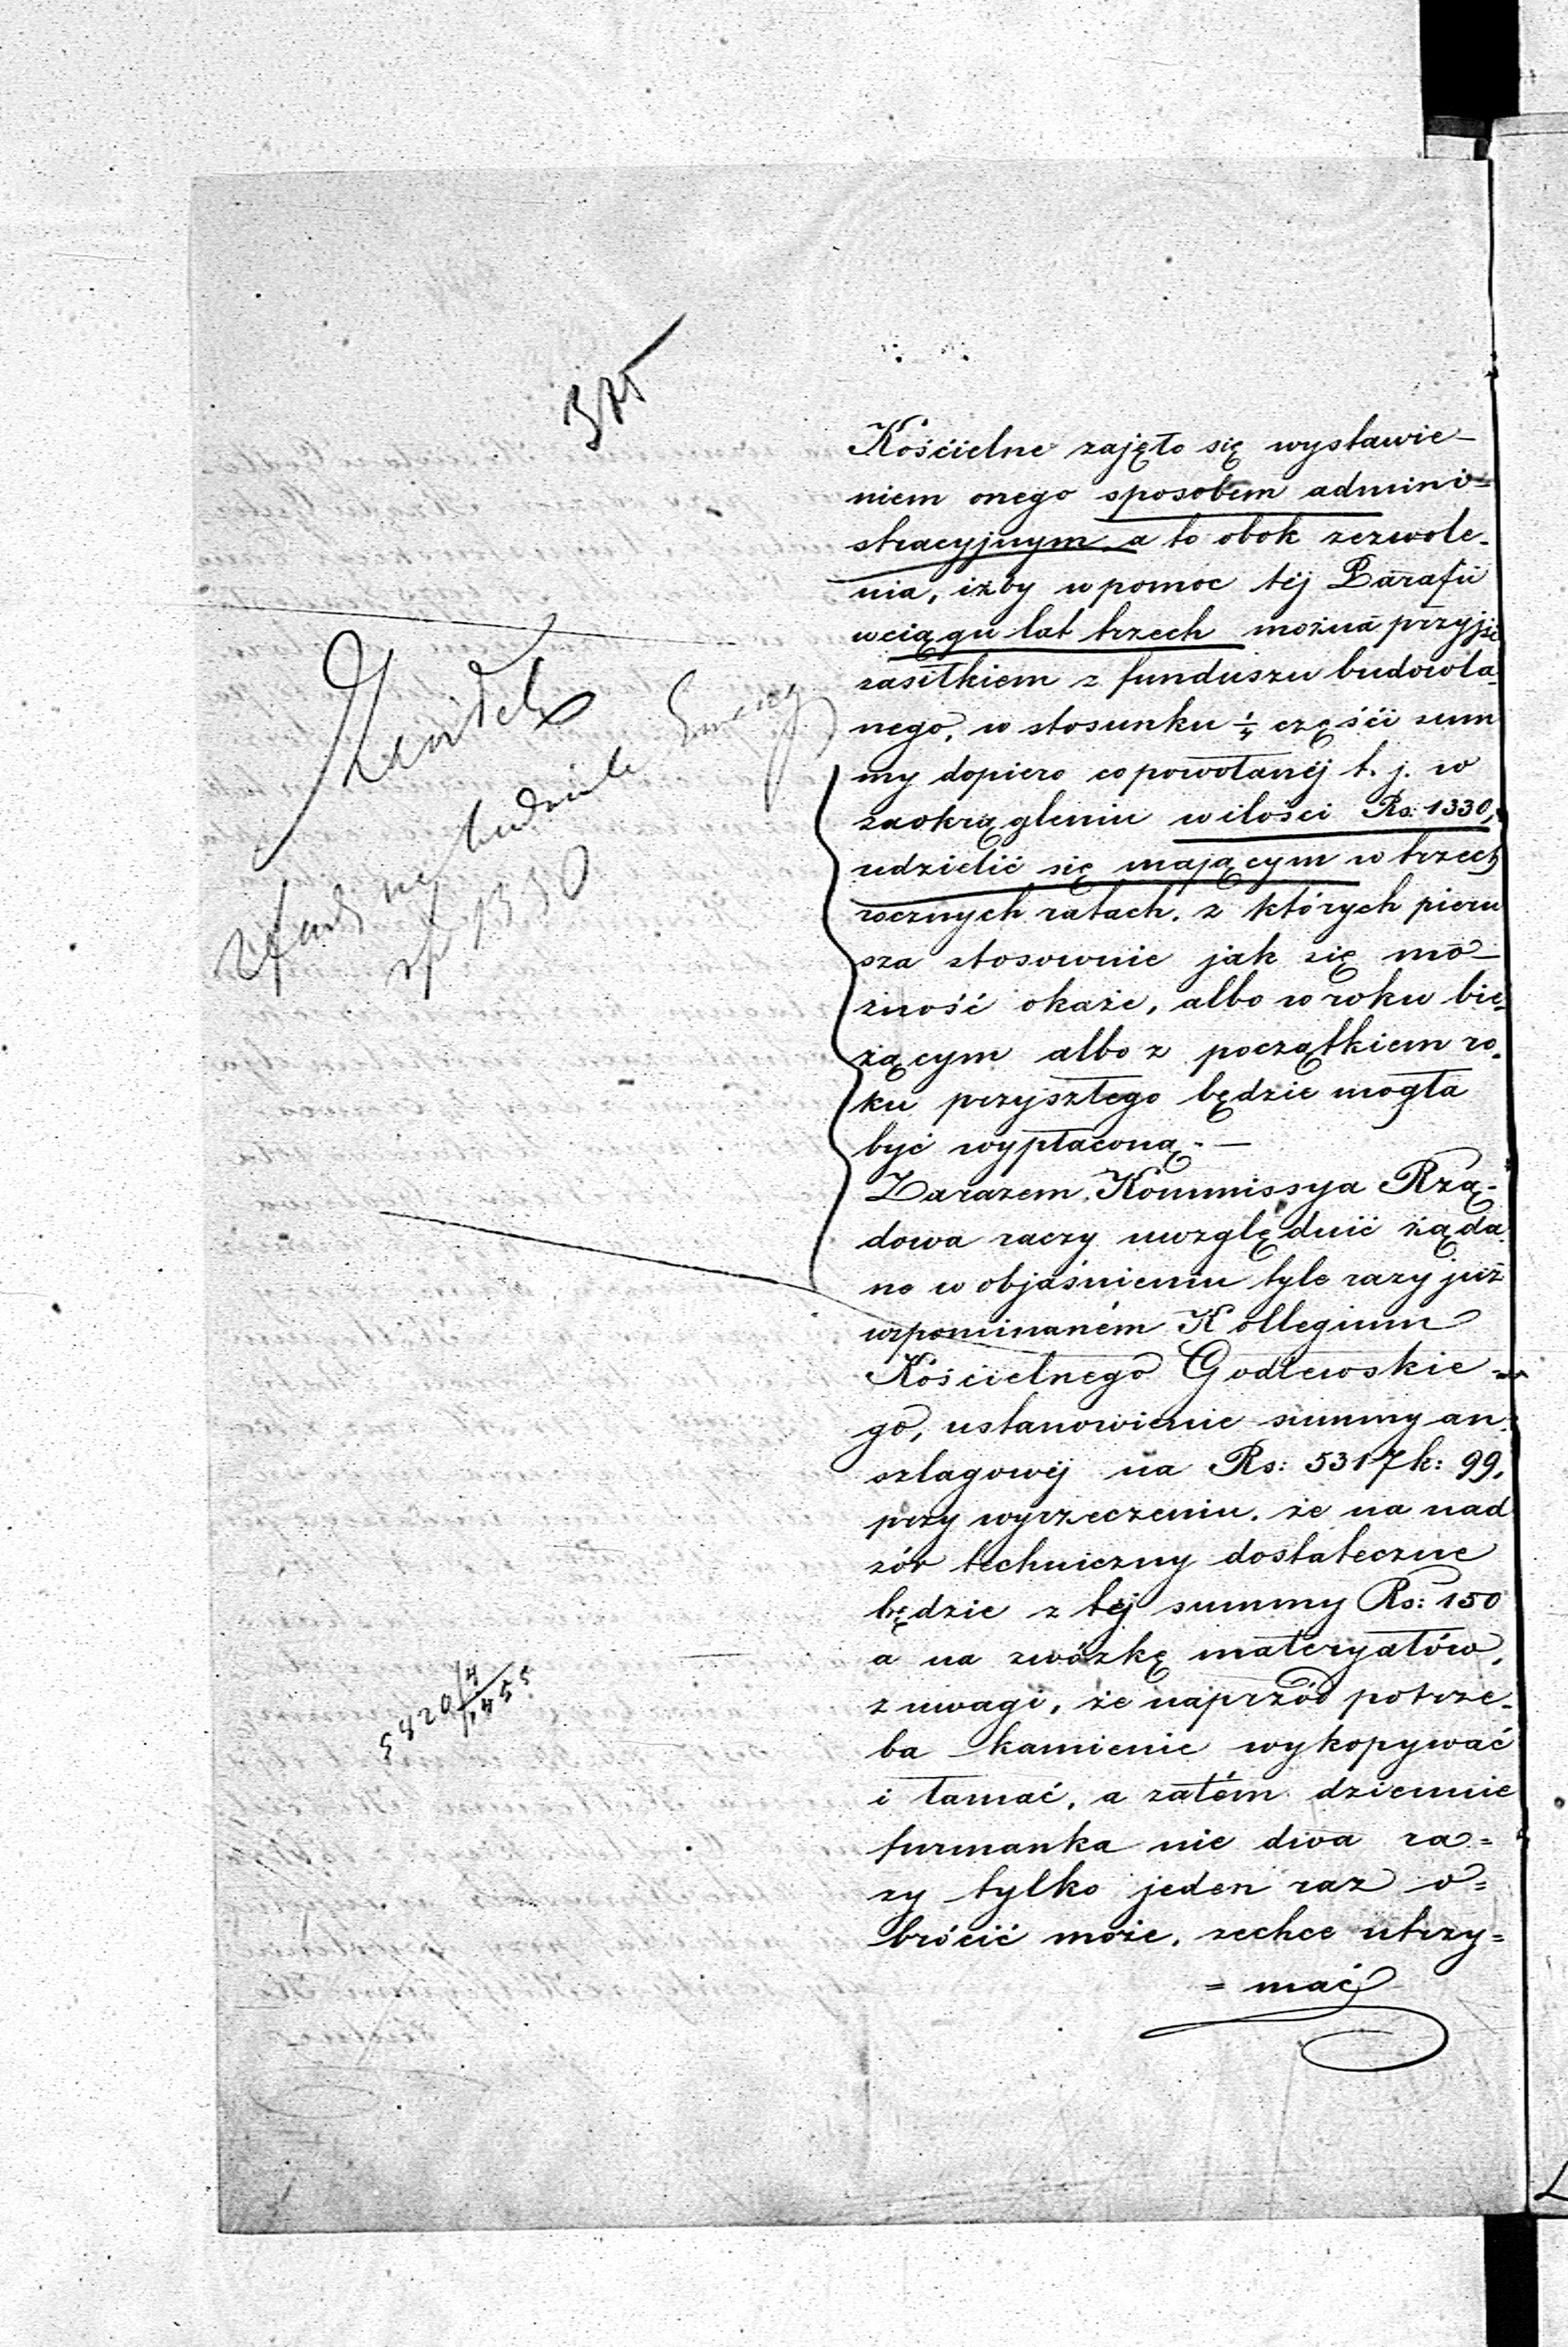 375
Kościelne zajęło się wystawie-
niem onego sposobem admini=
stracyjnym, a to obok zezwole-
nia, iżby w pomoc téj Parafii
w ciągu lat trzech można przyjść
zasiłkiem z funduszu budowla-
nego, w stosunku 1/4 części sum
my dopiero co powołanéj t. j. w
zaokrągleniu w ilości Rs: 1330,
udzielić się mającym w trzech
rocznych ratach, z których pierw
sza stosownie jak się mo-
żność okaże, albo w roku bie-
żącym albo z początkiem ro-
ku przyszłego będzie mogła
być wypłaconą. —
Zarazem Kommissya Rzą-
dowa raczy uwzględnić żąda
ne w objaśnieniu tyle razy już
wspominaném Kollegium
Kościelnego Godlewskie-
go, ustanowienie summy an-
szlagowéj na Rs: 5317 k: 99,
przy wyrzeczeniu, że na nad
zór techniczny dostateczne
będzie z téj summy Rs: 150
a na zwózkę materyałów,
z uwagi, że naprzód potrze-
ba kamienie wykopywać
i łamać, a zatém dziennie
furmanka nie dwa ra=
zy tylko jeden raz o=
brócić może, zechce utrzy=
= mać
1330
5820/4
1455